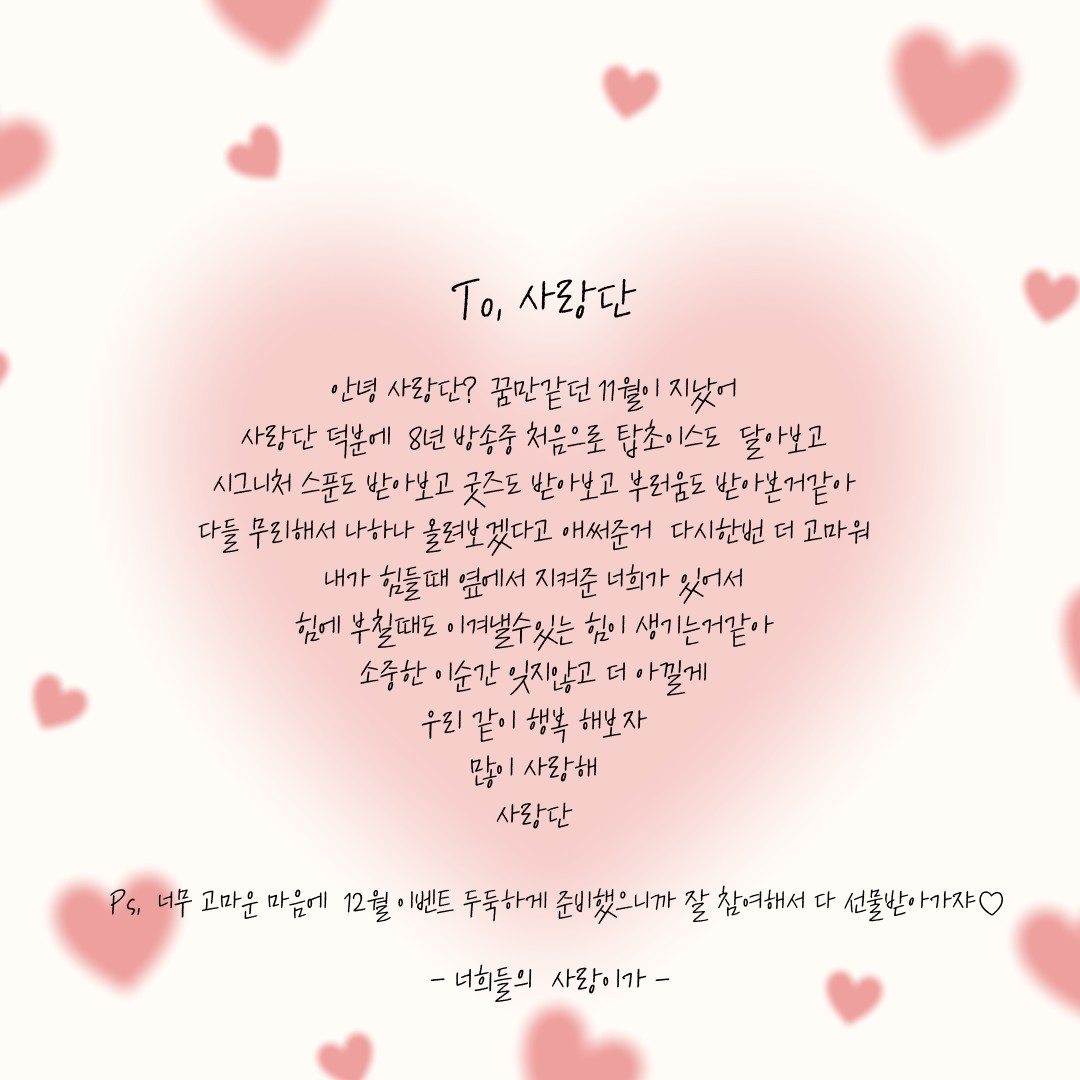 To, 사랑단
안녕 사랑단? 꿈만같던 11월이 지났어
사랑단 덕분에 8년 방송중 처음으로 탑초이스도 달아보고
시그니처 스푼도 받아보고 굿즈도 받아보고 부러움도 받아본거같아
다들 무리해서 나하나 올려보겠다고 애써준거 다시한번 더 고마워
내가 힘들때 옆에서 지켜준 너희가 있어서
힘에 부칠때도 이겨낼수있는 힘이 생기는거같아
소중한 이순간 잊지않고 더 아낄게
우리 같이 행복 해보자
많이 사랑해
사랑단
Ps, 너무 고마운 마음에 12월 이벤트 두둑하게 준비했으니까 잘 참여해서 다 선물받아가쟈♡
- 너희들의 사랑이가 -